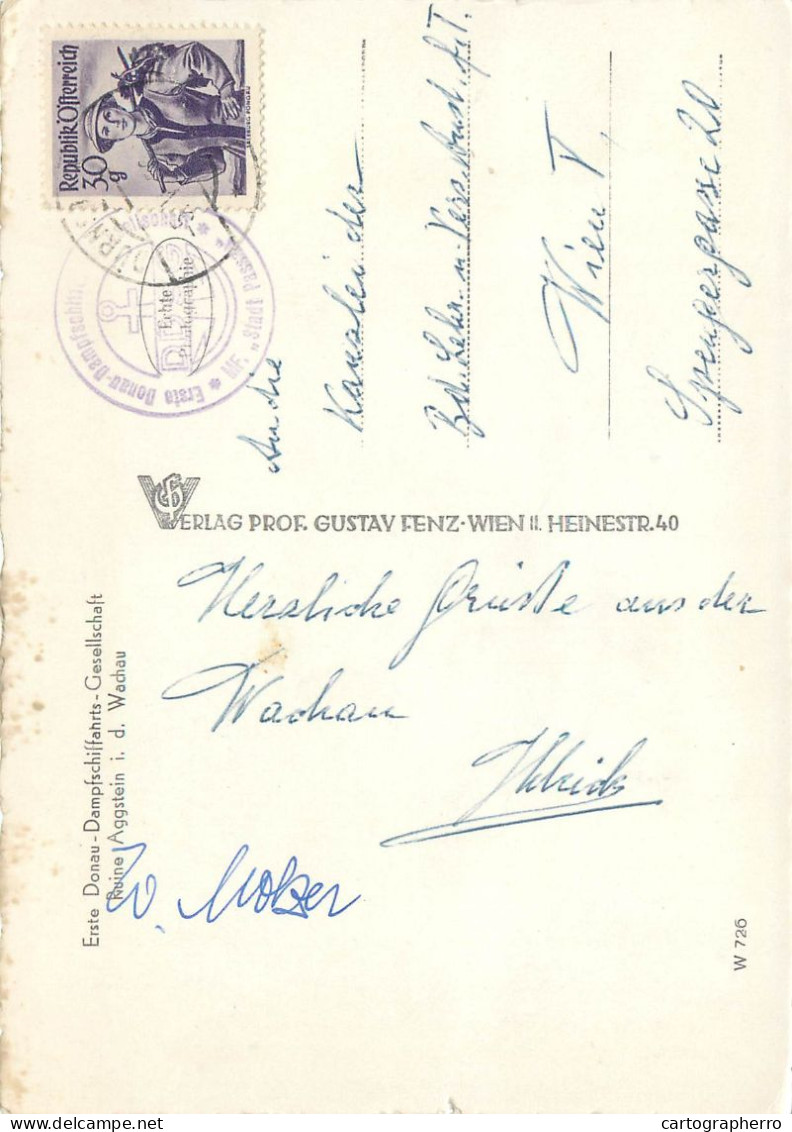 Republik Österreich
30
g
SALZBURG, PONGAU
DÜRN
* Erste Donau-Dampfschiff
* MF. „Stadt Passau“ *
Echte
Photographie
An die
Kanzlei der
Wien V,
Spengergasse 20
VERLAG PROF. GUSTAV FENZ · WIEN II. HEINESTR. 40
Erste Donau-Dampfschiffahrts-Gesellschaft
Ruine Aggstein i. d. Wachau
Herzliche Grüße aus der
Wachau
W 726
delcampe.net
cartographerro